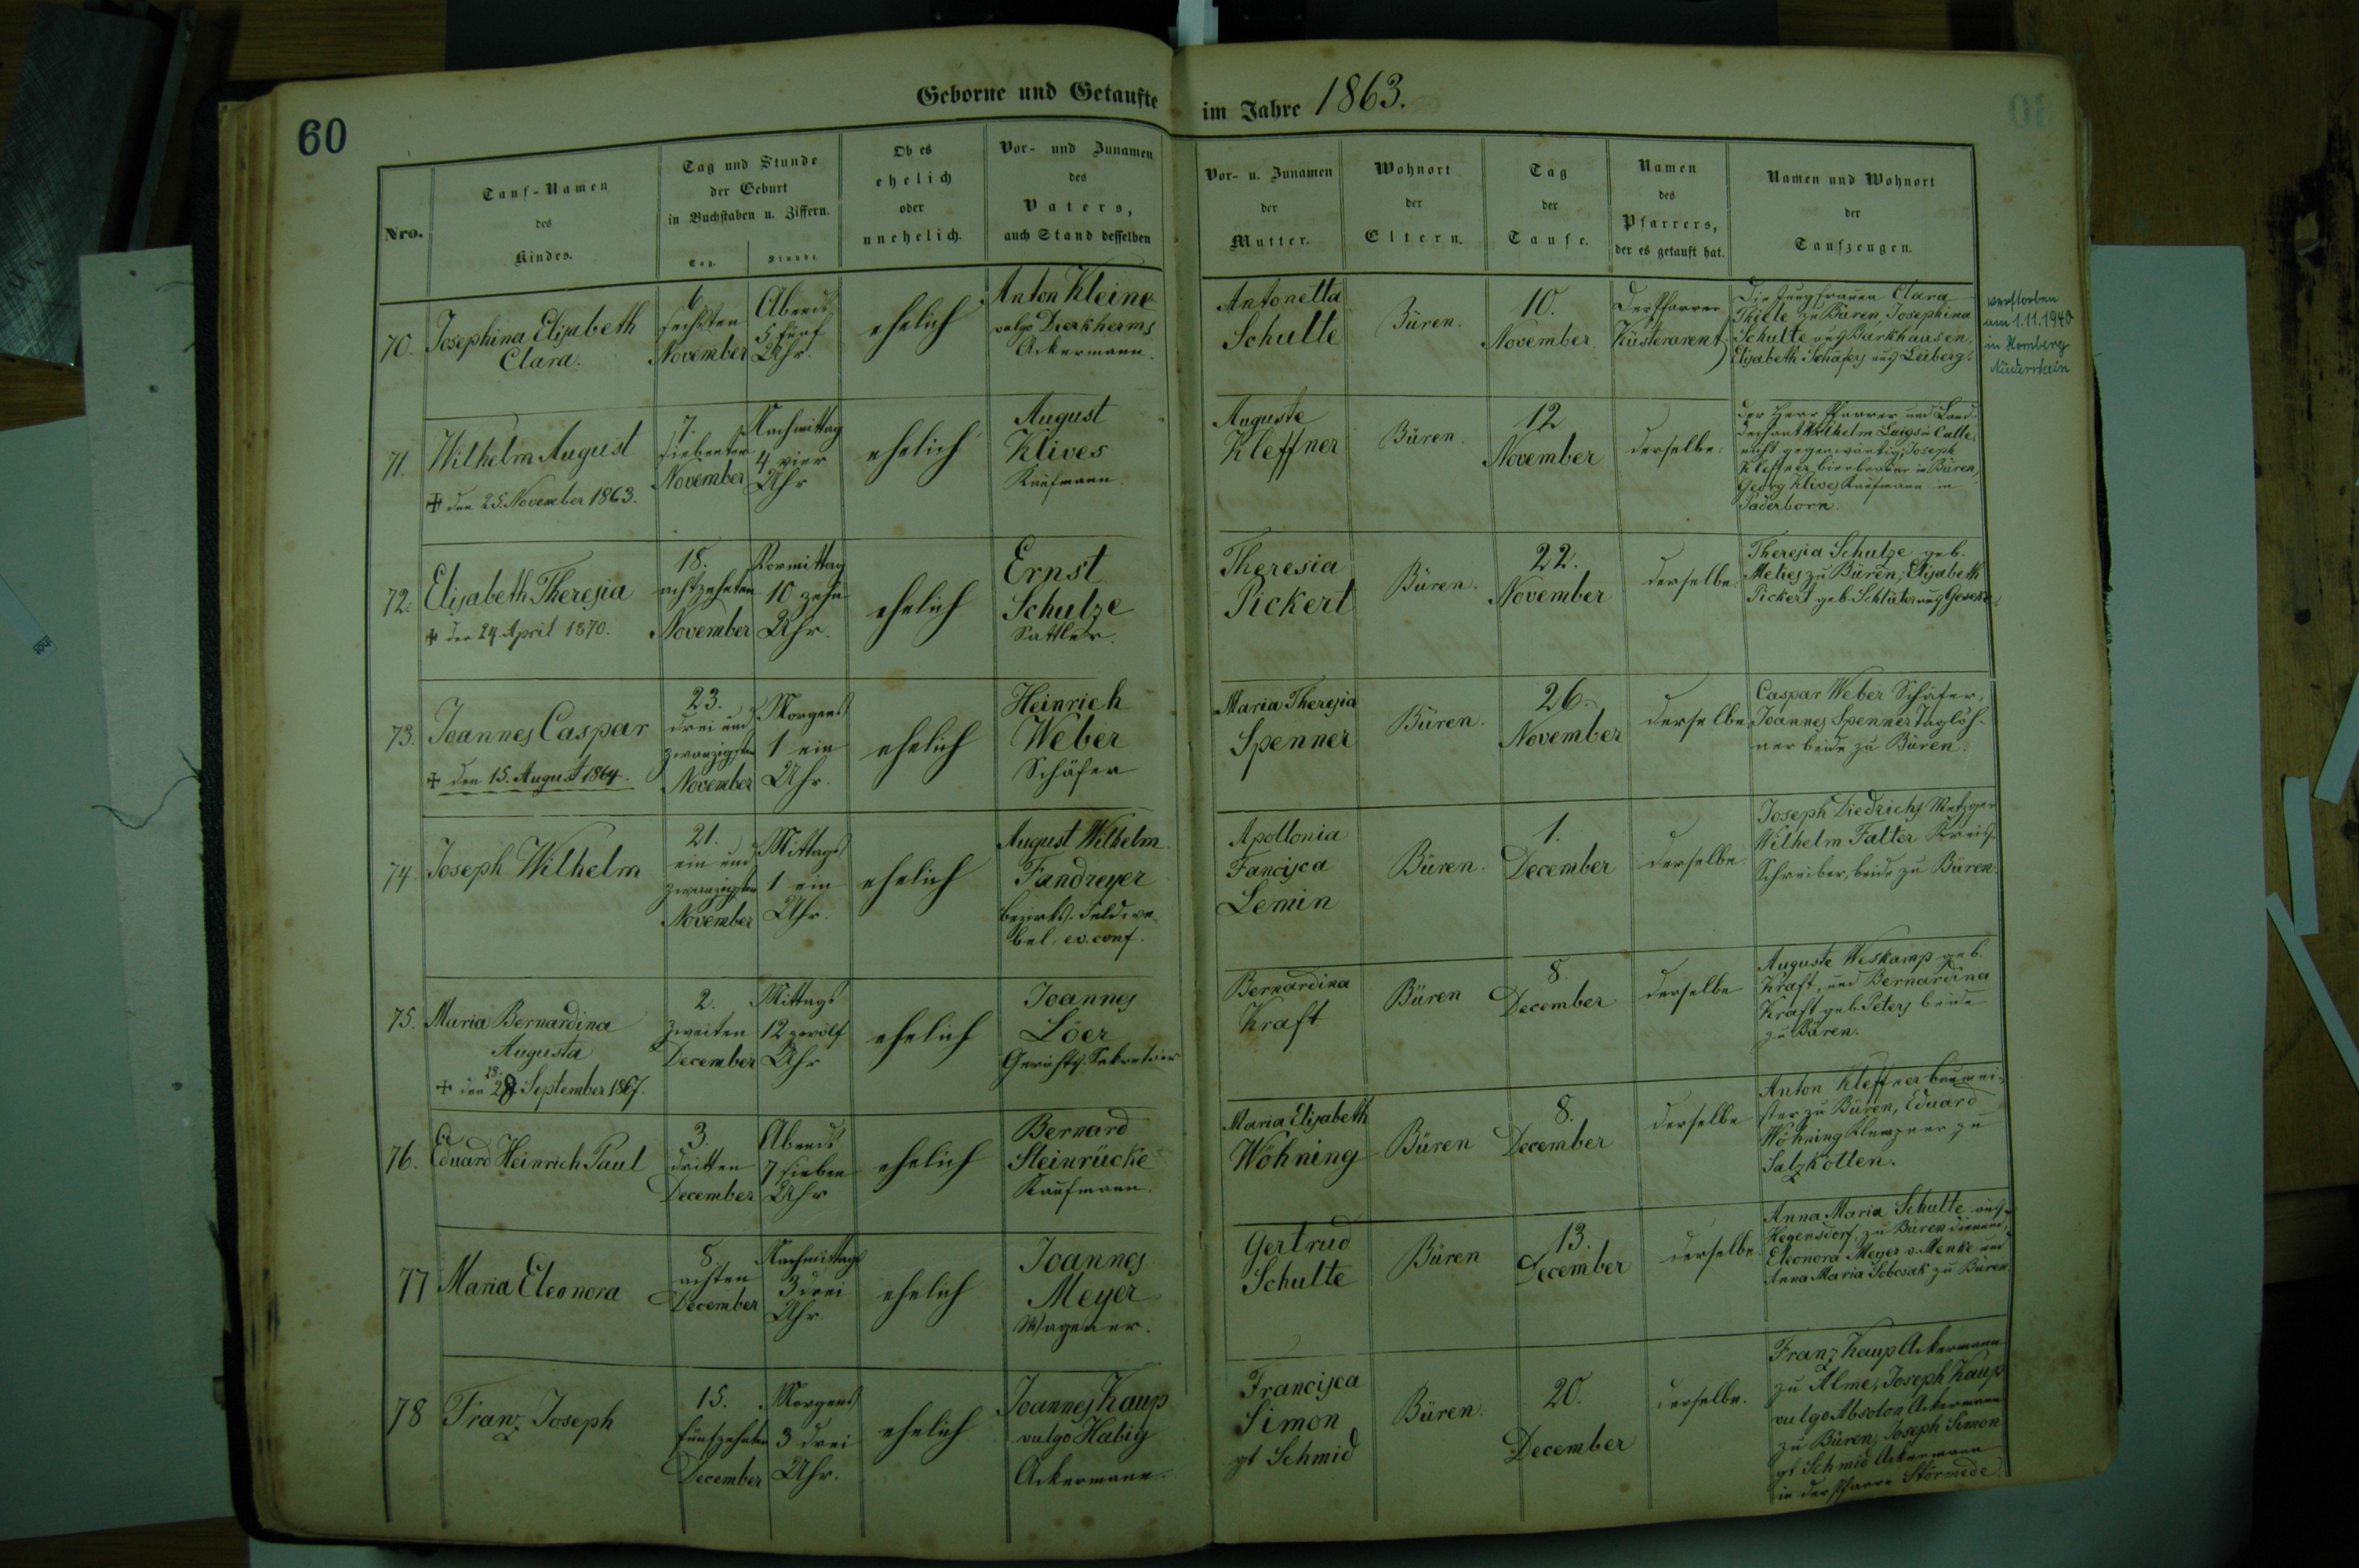 60
Geborne und Getaufte im Jahre 1863.
Nro.
Tauf-Namen
des
Kindes.
Tag und Stunde
der Geburt
in Buchstaben u. Ziffern.
Tag.
Stunde
Ob es
ehelich
oder
unehelich.
Vor- und Zunamen
des
Vaters,
auch Stand desselben
Vor- u. Zunamen
der
Mutter.
Wohnort
der
Eltern.
Tag
der
Taufe.
Namen
des
Pfarrers,
der es getauft hat.
Namen und Wohnort
der
Taufzeugen.
70.
Josephina Elisabeth
Clara.
6.
sechsten
November
Abends
5 fünf
Uhr.
ehelich
Anton Kleine
vulgo Dierkherms
Ackermann.
Antonetta
Schulte
Büren.
10.
November
Der Pfarrer
Küsterarent
Die Jungfrauen Clara
Thiele zu Büren, Josephina
Schulte aus Barkhausen,
Elisabeth Schäfers aus Leiberg.
verstorben
am 1.11.1940
in Homberg
Niederrhein
71.
Wilhelm August
† den 25. November 1863.
7.
siebenten
November
Nachmittag
4 vier
Uhr
ehelich
August
Klives
Kaufmann.
Auguste
Kleffner
Büren.
12
November
derselbe.
Der Herr Pfarrer und Land
dechant Wilhelm Luigs in Calle
nicht gegenwärtig; Joseph
Kleffner bierbrauer in Büren,
Georg Klives Kaufmann in
Paderborn.
72.
Elisabeth Theresia
† den 24. April 1870.
18.
achtzehnten
November
Vormittag
10 zehn
Uhr.
ehelich
Ernst
Schulze
Sattler.
Theresia
Pickert
Büren.
22.
November
derselbe.
Theresia Schulze geb.
Melies zu Büren; Elisabeth
Pickert geb. Schlüter aus Geseke.
73.
Joannes Caspar
† den 15. August 1864.
23.
drei und
zwanzigsten
November
Morgens
1 ein
Uhr.
ehelich
Heinrich
Weber
Schäfer
Maria Theresia
Spenner
Büren.
26.
November
derselbe.
Caspar Weber Schäfer,
Joannes Spenner Taglöh-
ner beide zu Büren.
74.
Joseph Wilhelm
21.
ein und
zwanzigsten
November
Mittags
1 ein
Uhr.
ehelich
August Wilhelm
Fandreyer
bezirks. Feldwe-
bel, ev. conf.
Apollonia
Fancisca
Lemin
Büren.
1.
December
derselbe.
Joseph Diedrichs Metzger
Wilhelm Falter Kreis-
Schreiber, beide zu Büren.
75.
Maria Bernardina
Augusta
† den 28. September 1867.
2.
zweiten
December
Mittags
12 zwölf
Uhr
ehelich
Joannes
Löer
Gerichts. Sekretair
Bernardina
Kraft
Büren
8.
December
derselbe
Auguste Weskamp geb.
Kraft, und Bernardina
Kraft geb. Peters beide
zu Büren.
76.
Eduard Heinrich Paul
3.
dritten
December
Abends
7 sieben
Uhr
ehelich
Bernard
Steinrücke
Kaufmann.
Maria Elisabeth
Wöhning
Büren
8.
December
derselbe
Anton Kleffner baumei-
ster zu Büren, Eduard
Wöhning Klempner zu
Salzkotten.
77
Maria Eleonora
8.
achten
December
Nachmittags
3 drei
Uhr.
ehelich
Joannes
Meyer
Wagener.
Gertrud
Schulte
Büren
13.
December
derselbe.
Anna Maria Schulte aus
Hegensdorf, zu Büren dienend,
Eleonora Meyer v. Menke und
Anna Maria Sobcsak zu Büren
78
Franz Joseph
15.
fünfzehnten
December
Morgens
3 drei
Uhr.
ehelich
Joannes Kaup
vulgo Habig
Ackermann.
Francisca
Simon
gt Schmid
Büren.
20.
December
derselbe.
Franz Kaup Ackermann
zu Alme, Joseph Kaup
vulgo Absolon Ackermann
zu Büren, Joseph Simon
gt Schmid Ackermann
in der Pfarre Störmede.